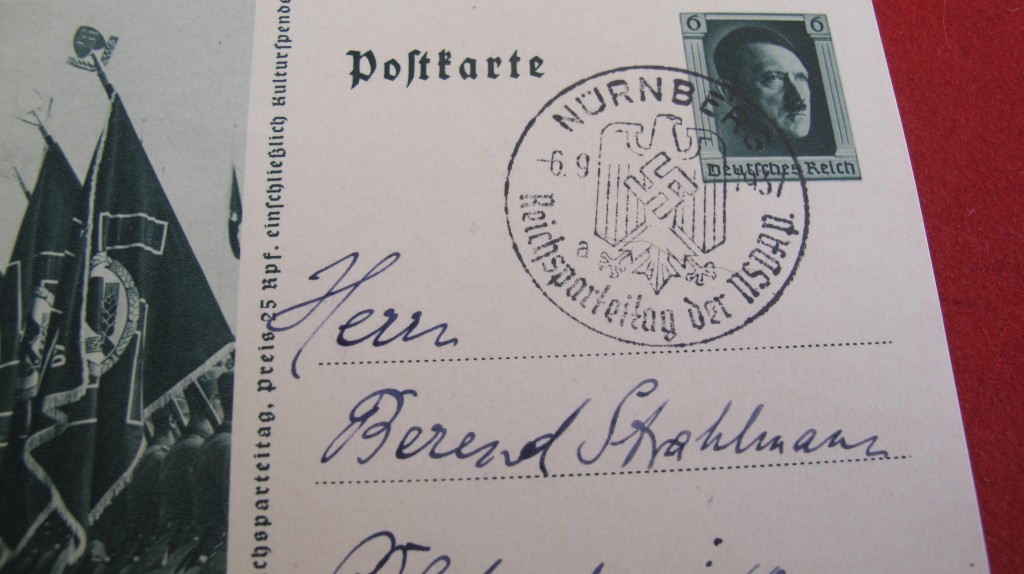 Postkarte
6 6
Deutsches Reich
NÜRNBERG
-6.9 1937
a
Reichsparteitag der NSDAP.
chsparteitag, Preis 25 Rpf. einschließlich Kulturspende
Herrn
Berend Strahlmann